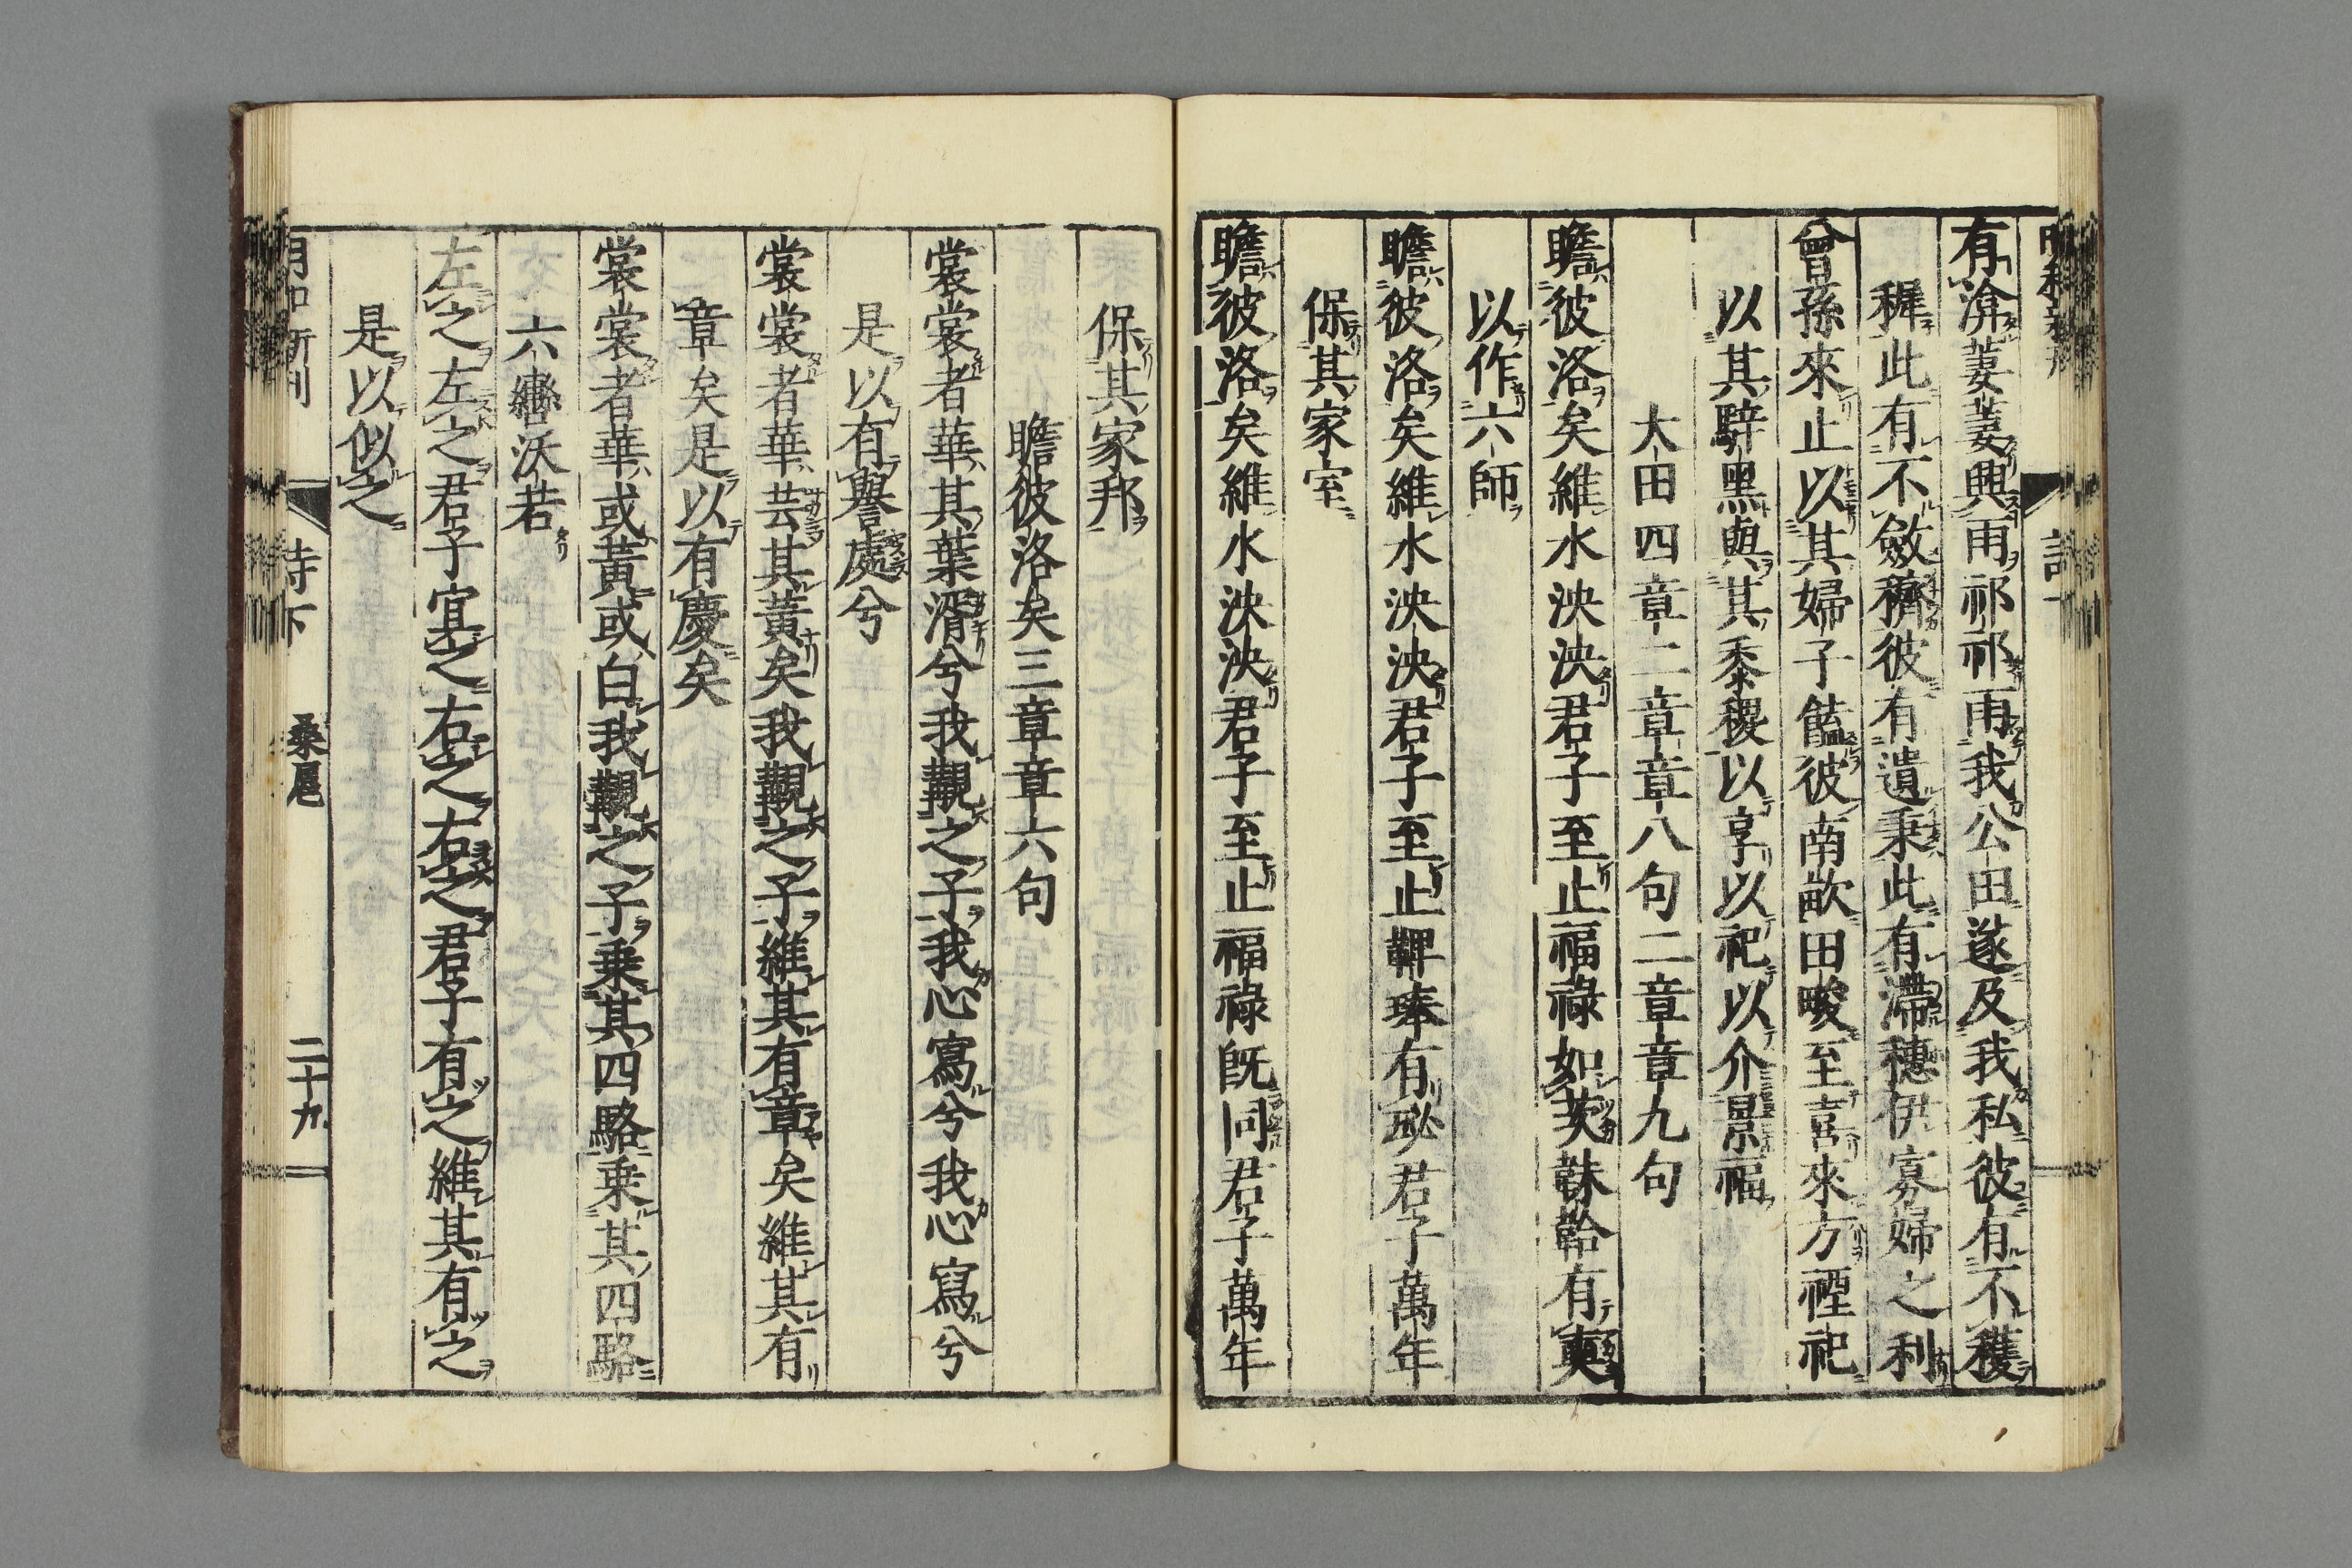 有渰萋萋興雨祁祁雨我公田遂及我私彼有不穫
穉此有不斂穧彼有遺秉此有滯穗伊寡婦之利
曾孫來止以其婦子饁彼南畝田畯至喜來方禋祀
以其騂黑與其黍稷以享以祀以介景福
大田四章二章章八句二章章九句
瞻彼洛矣維水泱泱君子至止福祿如茨韎韐有奭
以作六師
瞻彼洛矣維水泱泱君子至止鞞琫有珌君子萬年
保其家室
瞻彼洛矣維水泱泱君子至止福祿既同君子萬年
保其家邦
瞻彼洛矣三章章六句
裳裳者華其葉湑兮我覯之子我心寫兮我心寫兮
是以有譽處兮
裳裳者華芸其黃矣我覯之子維其有章矣維其有
章矣是以有慶矣
裳裳者華或黃或白我覯之子乘其四駱乘其四駱
六轡沃若
左之左之君子宜之右之右之君子有之維其有之
是以似之
詩下 桑扈 二十九